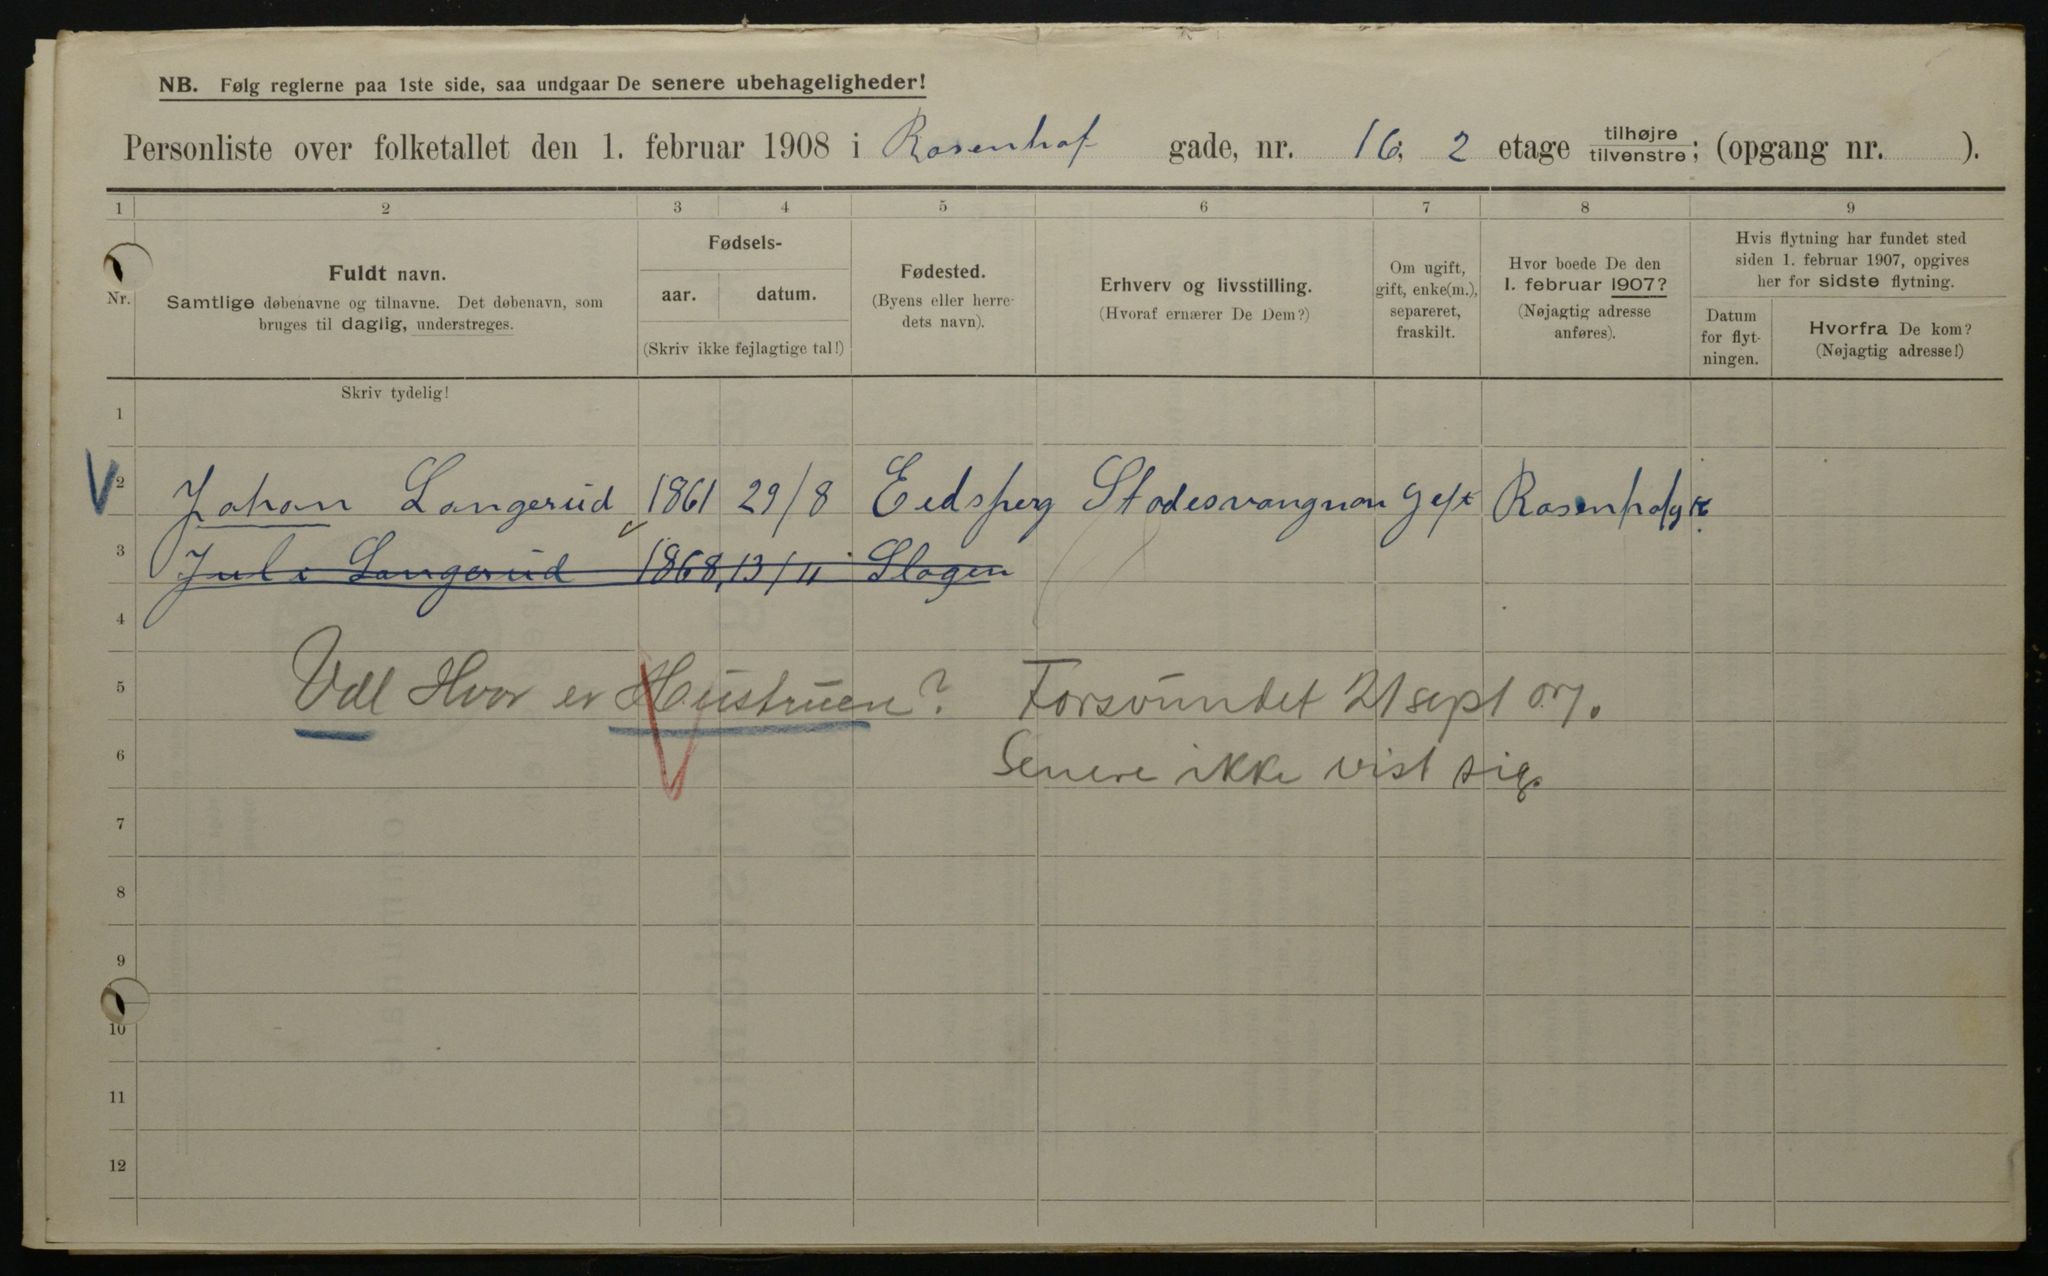 NB. Følg reglerne paa 1ste side, saa undgaar De senere ubehageligheder!
Personliste over folketallet den 1. februar 1908 i Rosenhof gade, nr. 16; 2 etage tilhøjre/tilvenstre; (opgang nr. ).
1 2 3 4 5 6 7 8 9
Nr.
Fuldt navn.
Samtlige døbenavne og tilnavne. Det døbenavn, som
bruges til daglig, understreges.
Skriv tydelig!
Fødsels-
aar. datum.
(Skriv ikke fejlagtige tal!)
Fødested.
(Byens eller herre-
dets navn).
Erhverv og livsstilling.
(Hvoraf ernærer De Dem?)
Om ugift,
gift, enke(m.),
separeret,
fraskilt.
Hvor boede De den
1. februar 1907?
(Nøjagtig adresse
anføres).
Hvis flytning har fundet sted
siden 1. februar 1907, opgives
her for sidste flytning.
Datum
for flyt-
ningen.
Hvorfra De kom?
(Nøjagtig adresse!)
1
2 Johan Langerud 1861 29/8 Eidsberg Stadesvangnon Gift Rosenhofg
3 Juli Langerud 1868 13/11 Slagen
4
5 Hvor er Hustruen? Forsvundet 21 sept 07.
6 Senere ikke vist sig.
7
8
9
10
11
12